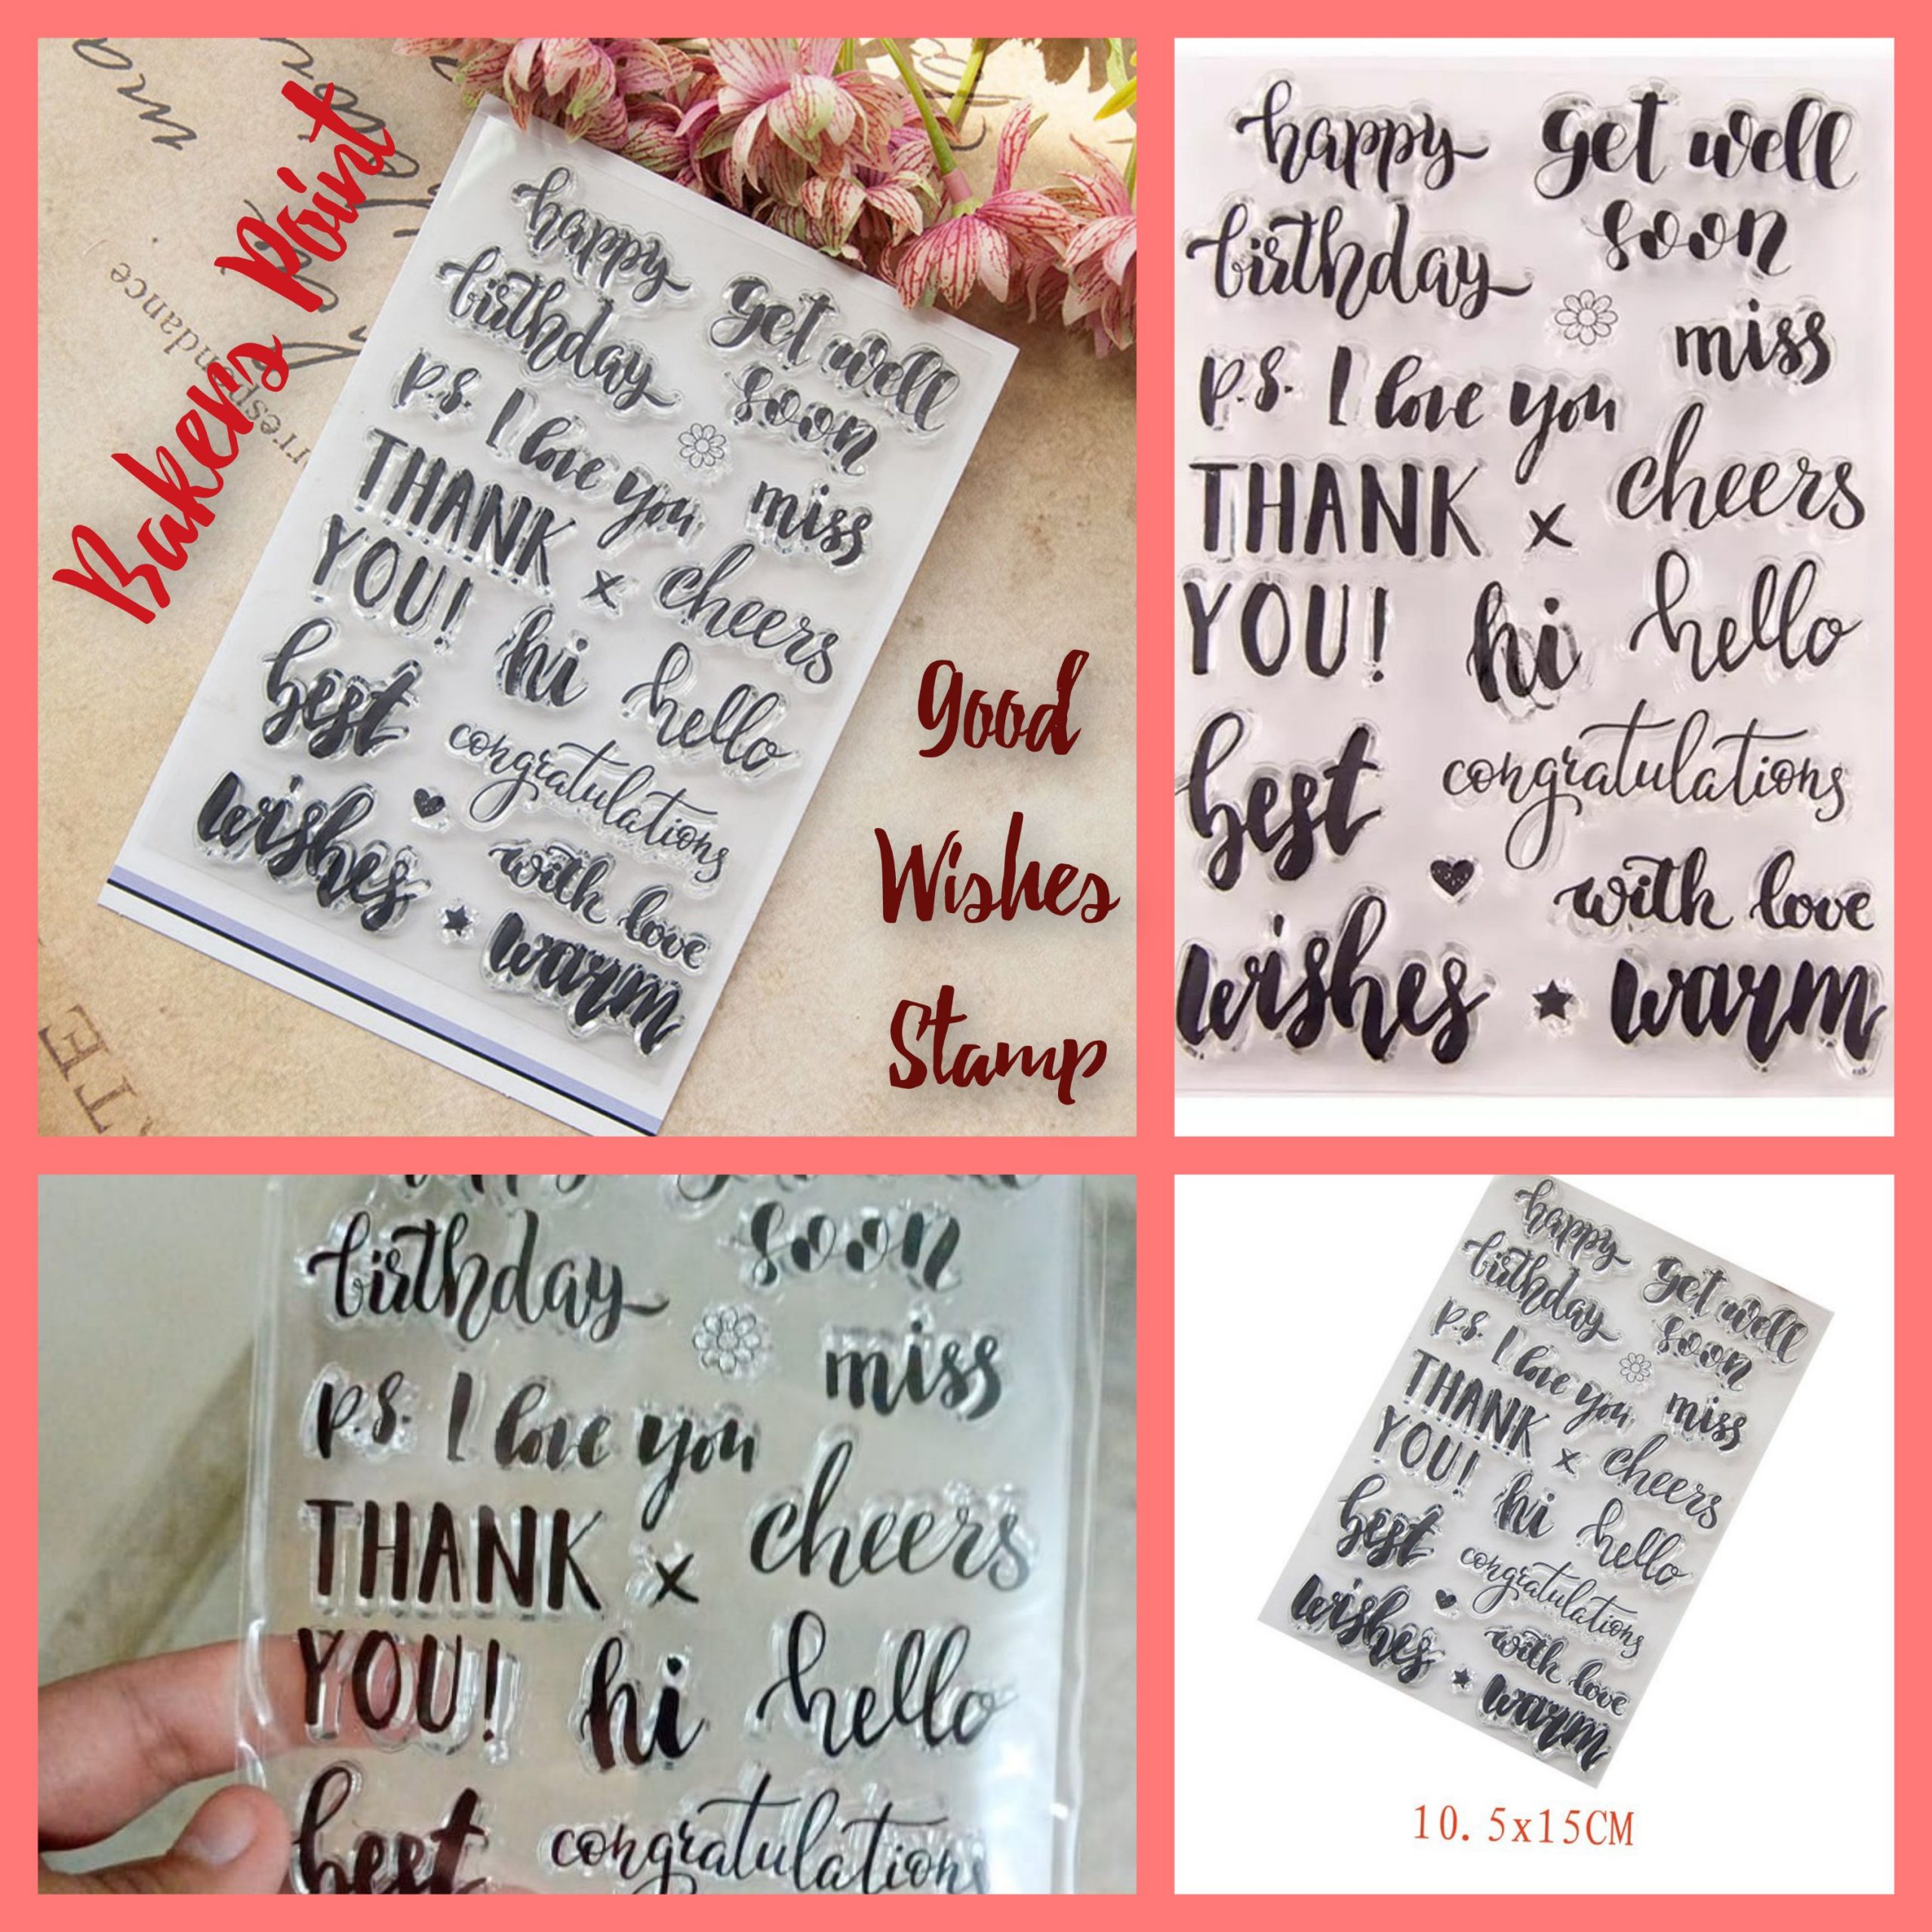 Bakers Point
happy
birthday
get well
soon
p.s. I love you
miss
THANK
YOU!
x
cheers
hi
hello
best
wishes
congratulations
with love
warm
Good
Wishes
Stamp
happy
birthday
get well
soon
miss
p.s. I love you
THANK
YOU!
x
cheers
hi
hello
best
wishes
congratulations
with love
warm
birthday
soon
miss
p.s. I love you
THANK
x
cheers
YOU!
hi
hello
best
congratulations
happy
birthday
get well
soon
p.s. I love you
miss
THANK
YOU!
x
cheers
hi
hello
best
wishes
congratulations
with love
warm
10.5x15CM